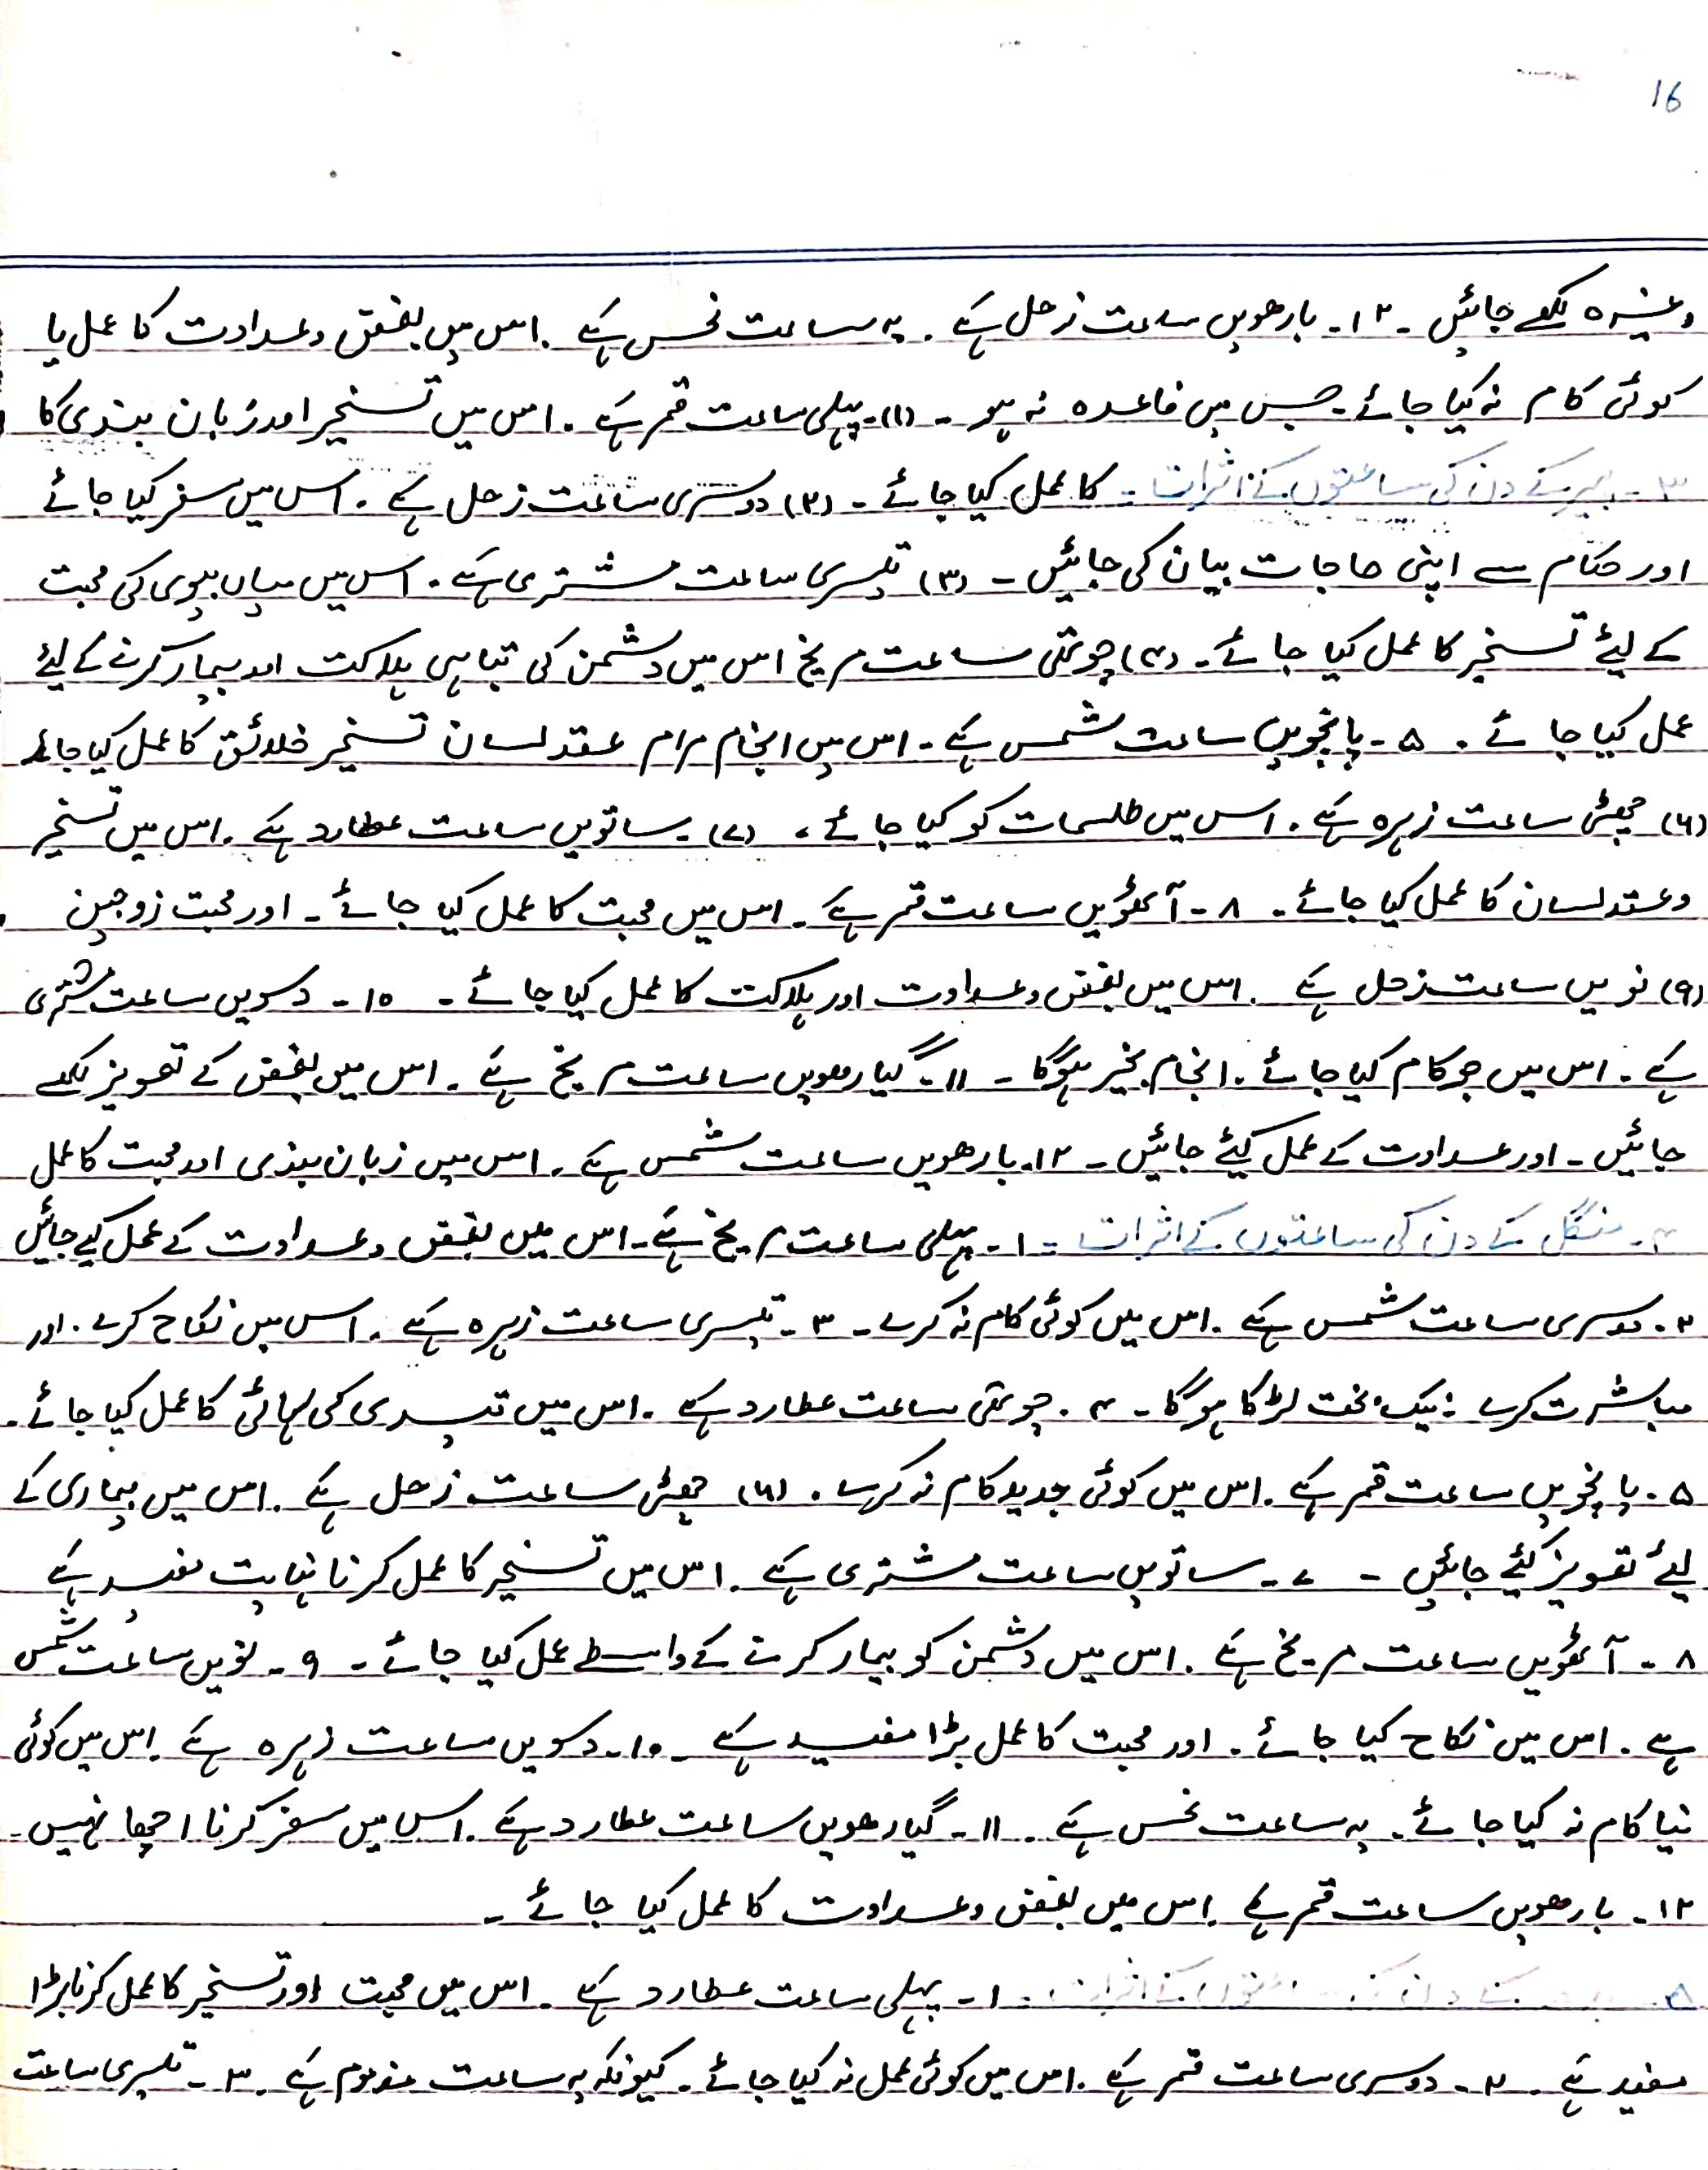 16
وغیرہ لکھے جائیں ۔ ۱۲۔ بارھویں ساعت زحل ہے ۔ یہ ساعت نحس ہے ۔ اس میں بغض وعداوت کا عمل یا
کوئی کام نہ کیا جائے ۔ جس میں فاعدہ نہ ہو ۔ (۱)۔ پہلی ساعت قمر ہے ۔ اس میں تسخیر اور زبان بندی کا
۳ ۔ پیر کے دن کی ساعتوں کے اثرات ۔ کا عمل کیا جائے ۔ (۲) دوسری ساعت زحل ہے ۔ اس میں سفر کیا جائے
اور حکام سے اپنی حاجات بیان کی جائیں ۔ (۳) تیسری ساعت مشتری ہے ۔ اس میں میاں بیوی کی محبت
کے لیئے تسخیر کا عمل کیا جائے ۔ (۴) چوتھی ساعت مریخ اس میں دشمن کی تباہی ہلاکت اور بیمار کرنے کے لیئے
عمل کیا جائے ۔ ۵ ۔ پانچویں ساعت شمس ہے ۔ اس میں انجام مرام عقد لسان تسخیر خلائق کا عمل کیا جائے
(۶) چھٹی ساعت زہرہ ہے ۔ اس میں طلسمات کو کیا جائے ۔ (۷) ۔ ساتویں ساعت عطارد ہے ۔ اس میں تسخیر
وعقد لسان کا عمل کیا جائے ۔ ۸ ۔ آٹھویں ساعت قمر ہے ۔ اس میں محبت کا عمل کیا جائے ۔ اور محبت زوجین
(۹) نویں ساعت زحل ہے ۔ اس میں بغض وعداوت اور ہلاکت کا عمل کیا جائے ۔ ۱۰ ۔ دسویں ساعت مشتری
ہے ۔ اس میں جو کام کیا جائے ۔ انجام بخیر ہوگا ۔ ۱۱ ۔ گیارھویں ساعت مریخ ہے ۔ اس میں بغض کے تعویز لکھے
جائیں ۔ اور عداوت کے عمل کیئے جائیں ۔ ۱۲ ۔ بارھویں ساعت شمس ہے ۔ اس میں زبان بندی اور محبت کا عمل
۴ ۔ منگل کے دن کی ساعتوں کے اثرات ۔ ۱ ۔ پہلی ساعت مریخ ہے ۔ اس میں بغض وعداوت کے عمل کیے جائیں
۲ ۔ دوسری ساعت شمس ہے ۔ اس میں کوئی کام نہ کرے ۔ ۳ ۔ تیسری ساعت زہرہ ہے ۔ اس میں نکاح کرے ۔ اور
مباشرت کرے نیک بخت لڑکا ہوگا ۔ ۴ ۔ چوتھی ساعت عطارد ہے ۔ اس میں قیدی کی رہائی کا عمل کیا جائے ۔
۵ ۔ پانچویں ساعت قمر ہے ۔ اس میں کوئی جدید کام نہ کرے ۔ (۶) چھٹی ساعت زحل ہے ۔ اس میں بیماری کے
لیئے تعویز کیئے جائیں ۔ ۷ ۔ ساتویں ساعت مشتری ہے ۔ اس میں تسخیر کا عمل کرنا نہایت مفید ہے
۸ ۔ آٹھویں ساعت مریخ ہے ۔ اس میں دشمن کو بیمار کرنے کے واسطے عمل کیا جائے ۔ ۹ ۔ نویں ساعت شمس
ہے ۔ اس میں نکاح کیا جائے ۔ اور محبت کا عمل بڑا مفید ہے ۔ ۱۰ ۔ دسویں ساعت زہرہ ہے ۔ اس میں کوئی
نیا کام نہ کیا جائے ۔ یہ ساعت نحس ہے ۔ ۱۱ ۔ گیارھویں ساعت عطارد ہے ۔ اس میں سفر کرنا اچھا نہیں ۔
۱۲ ۔ بارھویں ساعت قمر ہے ۔ اس میں بغض وعداوت کا عمل کیا جائے ۔
۵ ۔ کے دن کی ساعتوں کے اثرات ۔ ۱ ۔ پہلی ساعت عطارد ہے ۔ اس میں محبت اور تسخیر کا عمل کرنا بڑا
مفید ہے ۔ ۲ ۔ دوسری ساعت قمر ہے ۔ اس میں کوئی عمل نہ کیا جائے ۔ کیونکہ یہ ساعت مذموم ہے ۔ ۳ ۔ تیسری ساعت